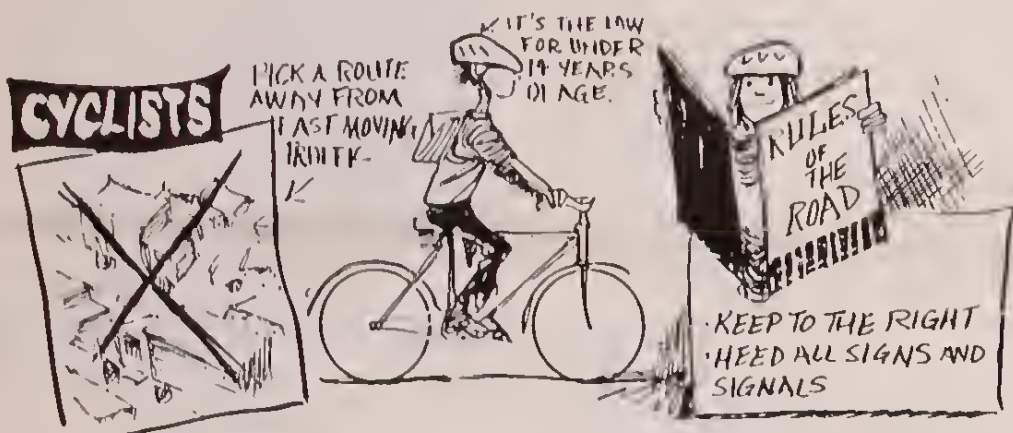 CYCLISTS
PICK A ROUTE
AWAY FROM
FAST MOVING
IT'S THE LAW
FOR UNDER
14 YEARS
OF AGE.
RULES
OF
THE
ROAD
• KEEP TO THE RIGHT
• HEED ALL SIGNS AND
SIGNALS